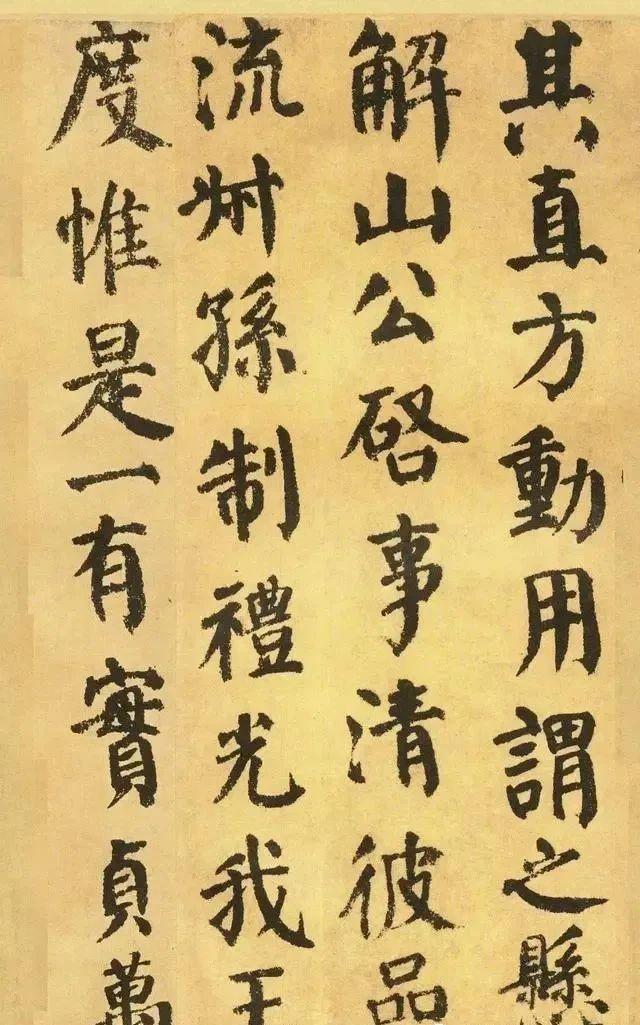 其直方動用謂之縣
解山公啓事清彼品
流州孫制禮光我王
度惟是一有實貞萬